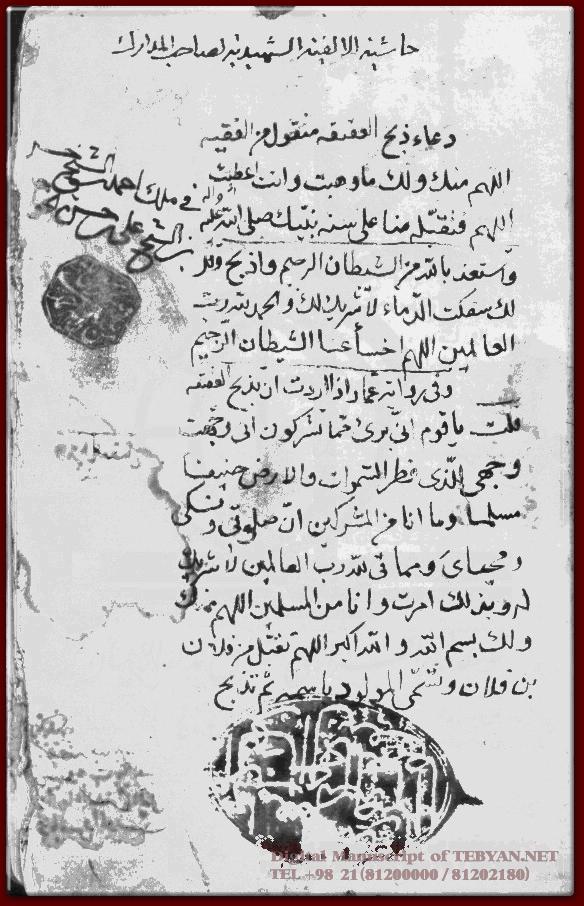 حاشيه الالفيه الشهيديه لصاحب المدارك
دعاء ذبح العقيقه منقول من الفقيه
اللهم منك ولك ما وهبت وانت اعطيت
اللهم فتقبّله منا على سنه نبيّك صلى الله عليه وآله
واستعذ بالله من الشيطان الرجيم واذبح وقل
لك سفكت الدّماء لا شريك لك والحمد لله ربّ
العالمين اللهم اخسأ عنا الشيطان الرجيم
وفى روايه عمار اذا اردت ان تذبح العقيقه
قلت يا قوم انّى برئ ممّا تشركون انى وجّهت
وجهى للّذى فطر السموات والارض حنيفا
مسلما وما انا من المشركين انّ صلوتى و نسكى
ومحياى ومماتى لله ربّ العالمين لا شريك
له وبذلك امرت وانا من المسلمين اللهم منك
ولك بسم الله والله اكبر اللهم تقبّل من فلان
بن فلان وتسمّى المولود باسمه ثم تذبح
فى ملك احمد
الشيخ على
Digital Manuscript of TEBYAN.NET
TEL +98 21 (81200000 / 81202180)